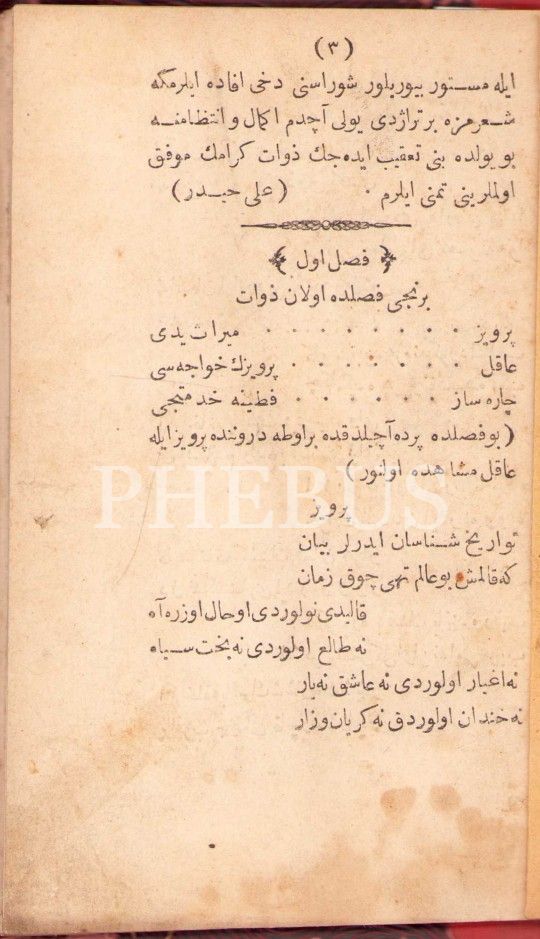 (٣)
ايله مستور بيوريلور شوراسنى دخى افاده ايلرمكه
شعرمزه بر تراژدى يولى آچدم اكمال و انتظامنه
بو يولده بنى تعقيب ايده جك ذوات كرامك موفق
اولملرينى تمنى ايلرم . (على حيدر)
﴿ فصل اول ﴾
برنجى فصلده اولان ذوات
پرويز . . . . . . . . ميراث يدى
عاقل . . . . . . . پرويزك خواجه سى
چاره ساز . . . . . . فطينه خدمتجى
(بو فصلده پرده آچيلدقده بر اوطه دروننده پرويز ايله
عاقل مشاهده اولنور)
PHEBUS
پرويز
تواريخ شناسان ايدرلر بيان
كه قالمش بو عالم تهى چوق زمان
قاليدى نولوردى او حال اوزره آه
نه طالع اولوردى نه بخت سياه
نه اغيار اولوردى نه عاشق نه يار
نه خندان اولوردق نه كريان و زار